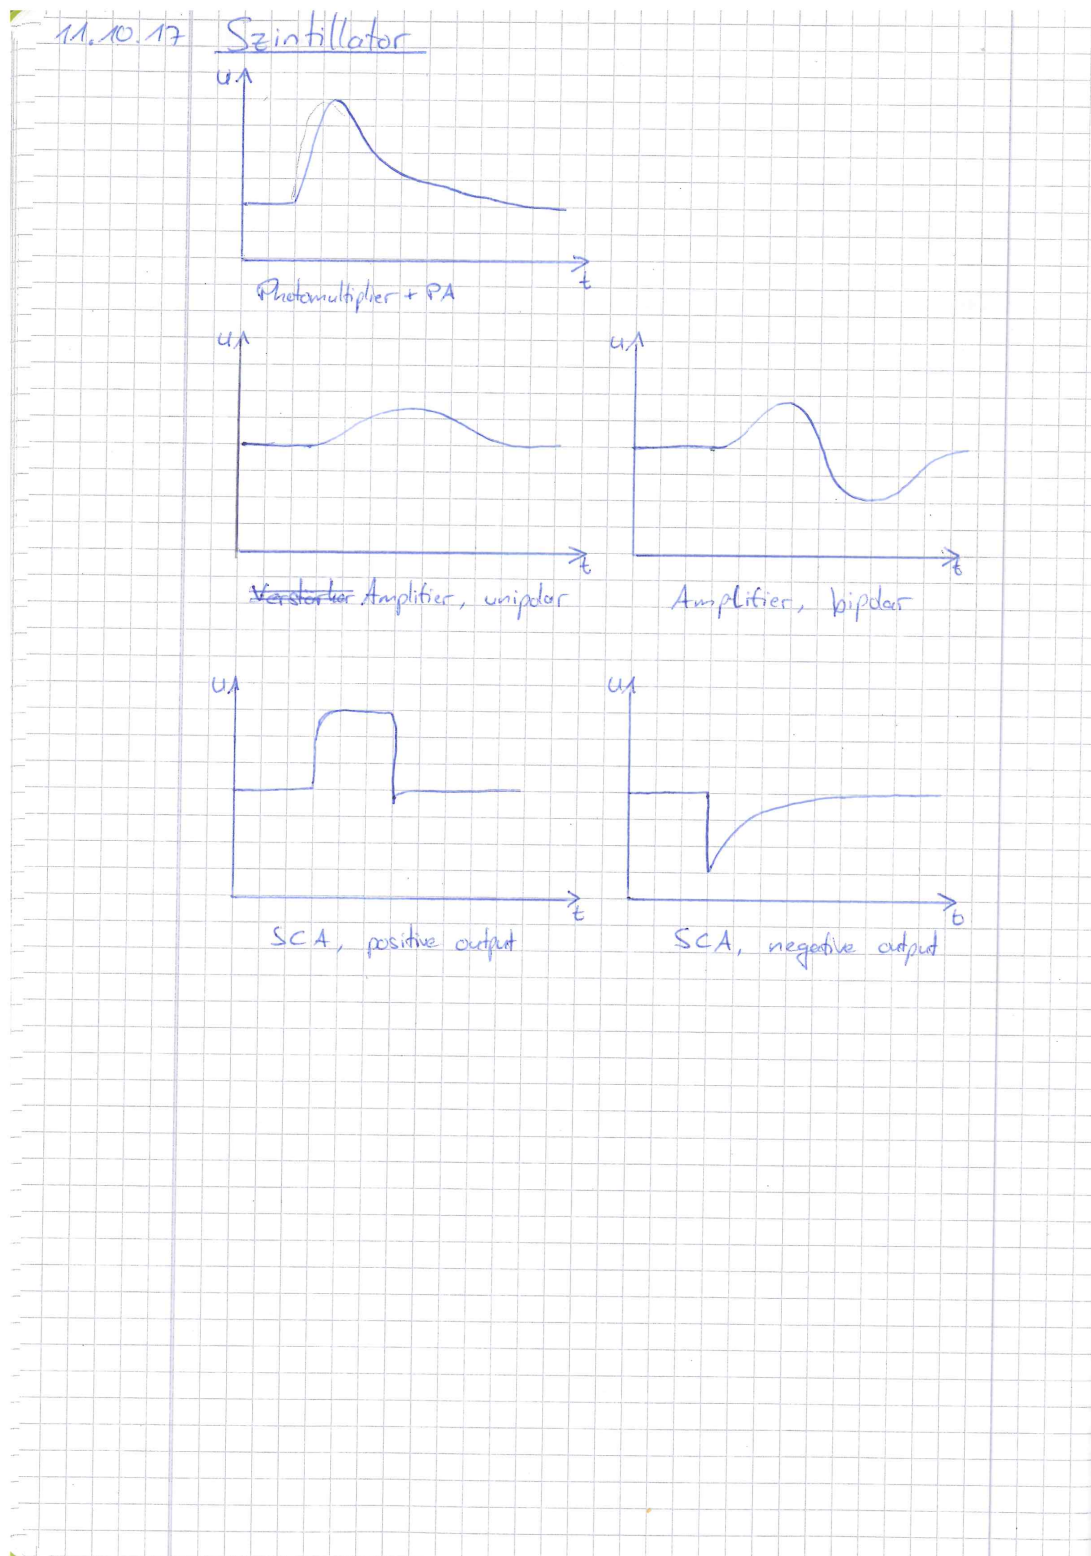 11.10.17 Szintillator
U
t
Photomultiplier + PA
U U
t t
Verstärker Amplifier, unipolar Amplifier, bipolar
U U
t t
SCA, positive output SCA, negative output